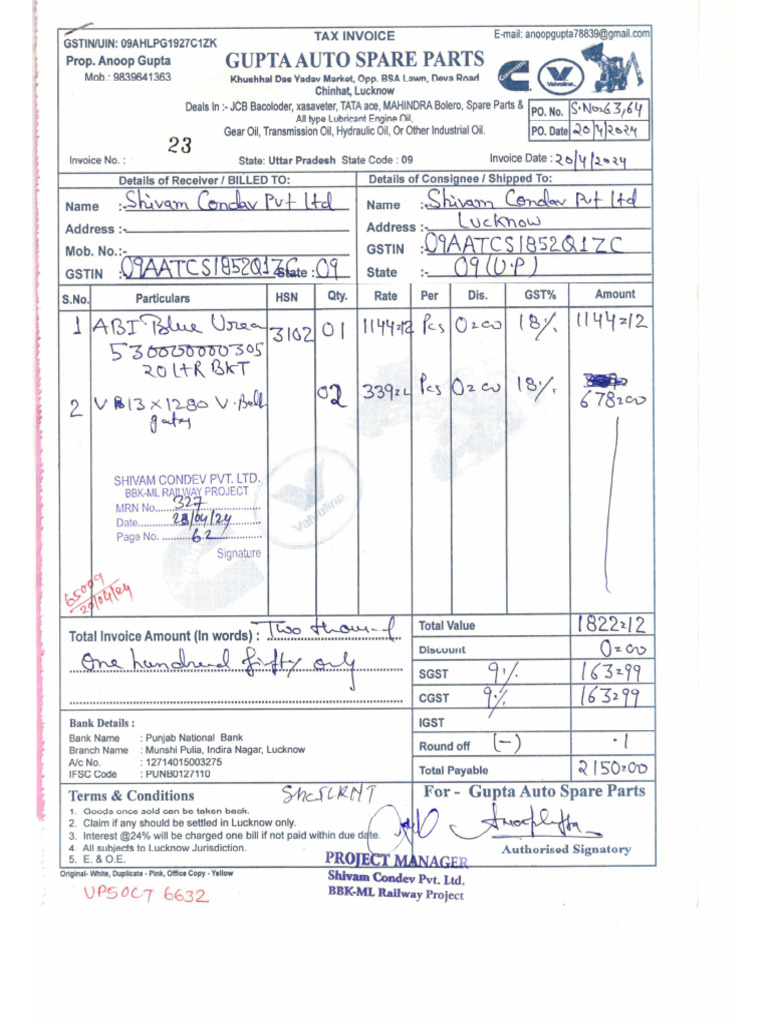 TAX INVOICE
E-mail: anoopgupta78839@gmail.com
GSTIN/UIN: 09AHLPG1927C1ZK
Prop. Anoop Gupta
Mob.: 9839641363
GUPTA AUTO SPARE PARTS
Khushhal Das Yadav Market, Opp. BSA Lawn, Deva Road
Chinhat, Lucknow
Cummins
Valvoline
Deals In :- JCB Bacoloder, xasaveter, TATA ace, MAHINDRA Bolero, Spare Parts &
All type Lubricant Engine Oil,
Gear Oil, Transmission Oil, Hydraulic Oil, Or Other Industrial Oil.
PO. No. S.No=63,64
PO. Date 20/4/2024
Invoice No. : 23
State: Uttar Pradesh State Code : 09
Invoice Date : 20/4/2024
Details of Receiver / BILLED TO:
Details of Consignee / Shipped To:
Name :- Shivam Condev Pvt Ltd
Name :- Shivam Condev Pvt Ltd
Address :-
Address :- Lucknow
Mob. No.:-
GSTIN :- 09AATCS1852Q1ZC
GSTIN :- 09AATCS1852Q1ZC State : 09
State :- 09 (U.P)
S.No. Particulars HSN Qty. Rate Per Dis. GST% Amount
1 ABI Blue Urea 3102 01 1144=12 Pcs 0=00 18% 1144=12
530000000305
20 LtR BKT
2 V B13 x 1280 V. Belt 02 339= Pcs 0=00 18% 678=00
gates
Valvoline
SHIVAM CONDEV PVT. LTD.
BBK-ML RAILWAY PROJECT
MRN No. 327
Date 28/04/24
Page No. 62
Signature
65009
20/04/24
Total Invoice Amount (In words) : Two thousand
One hundred fifty only
Total Value 1822=12
Discount 0=00
SGST 9% 163=99
CGST 9% 163=99
IGST
Round off (-) .1
Total Payable 2150=00
Bank Details :
Bank Name : Punjab National Bank
Branch Name : Munshi Pulia, Indira Nagar, Lucknow
A/c No. : 12714015003275
IFSC Code : PUNB0127110
Terms & Conditions
1. Goods once sold can be taken back.
2. Claim if any should be settled in Lucknow only.
3. Interest @24% will be charged one bill if not paid within due date.
4. All subjects to Lucknow Jurisdiction.
5. E. & O.E.
For - Gupta Auto Spare Parts
Anoop Gupta
Authorised Signatory
PROJECT MANAGER
Shivam Condev Pvt. Ltd.
BBK-ML Railway Project
Original- White, Duplicate - Pink, Office Copy - Yellow
UP50CT 6632